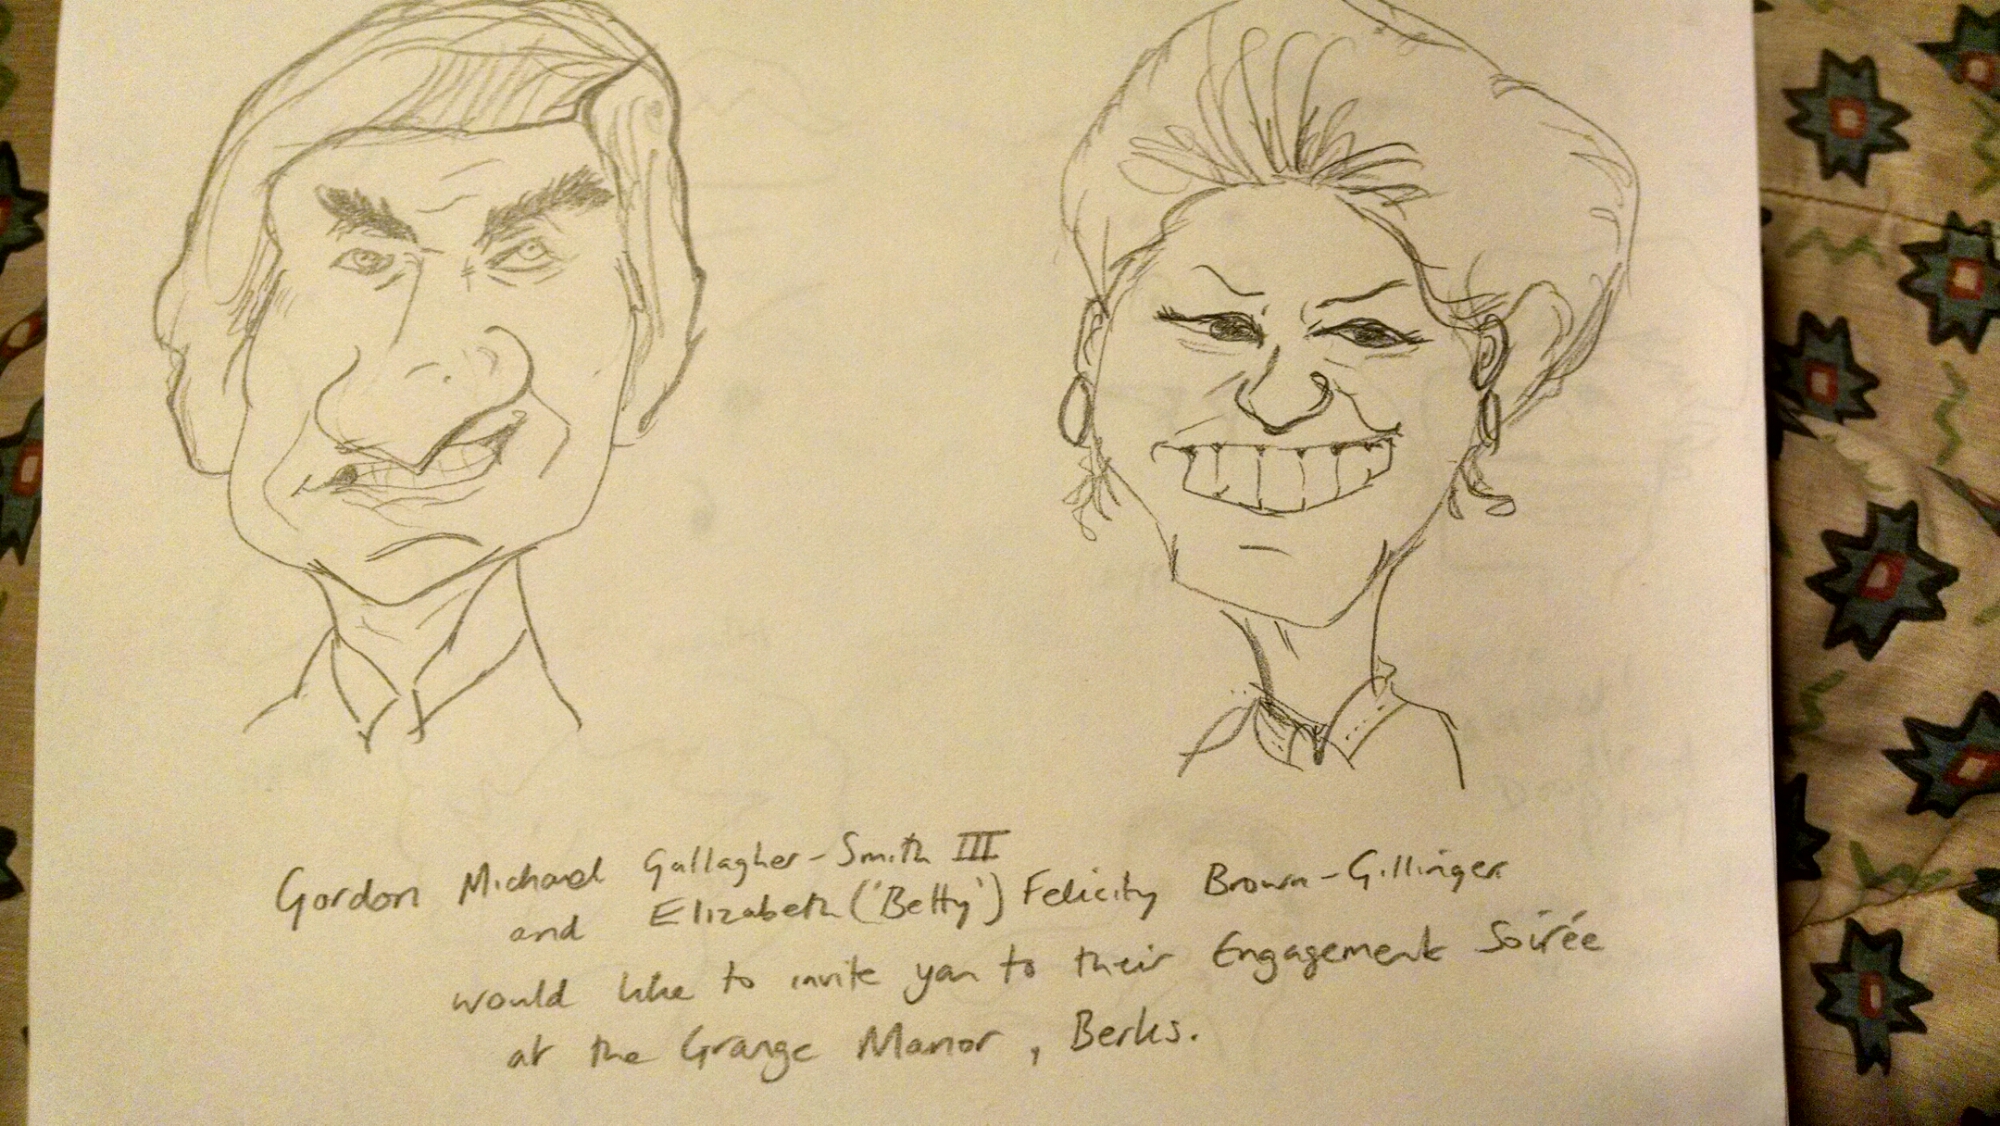 Gordon Michael Gallagher-Smith III
and Elizabeth ('Betty') Felicity Brown-Gillinger
would like to invite you to their Engagement Soirée
at the Grange Manor, Berks.